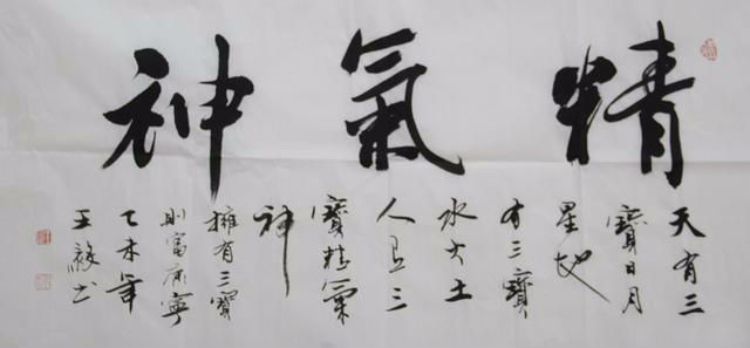 精氣神
天有三
寶日月
星地
有三寶
水火土
人有三
寶精氣
神
擁有三寶
則富康寧
乙未年
王书